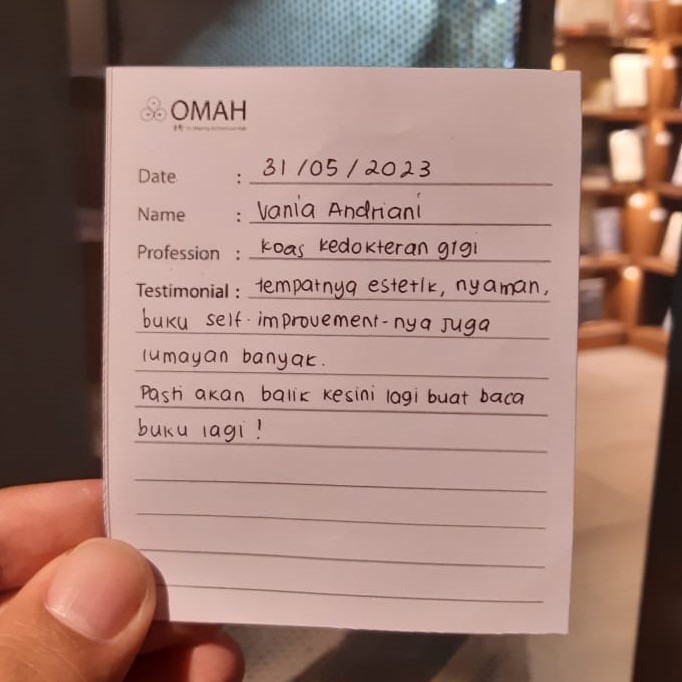 OMAH
Date : 31/05/2023
Name : Vania Andriani
Profession : koas kedokteran gigi
Testimonial : tempatnya estetik, nyaman,
buku self-improvement-nya juga
lumayan banyak.
Pasti akan balik kesini lagi buat baca
buku lagi!